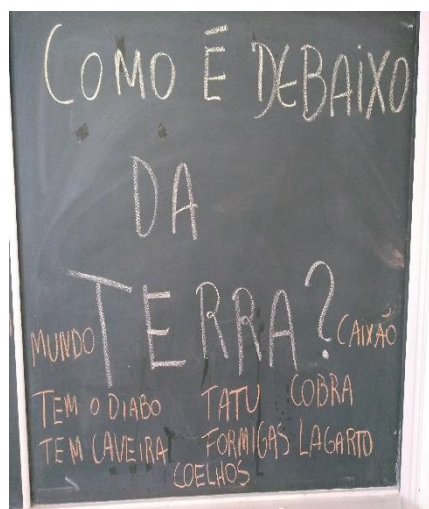 COMO É DEBAIXO
DA
TERRA?
MUNDO CAIXÃO
TEM O DIABO TATU COBRA
TEM CAVEIRA FORMIGAS LAGARTO
COELHOS